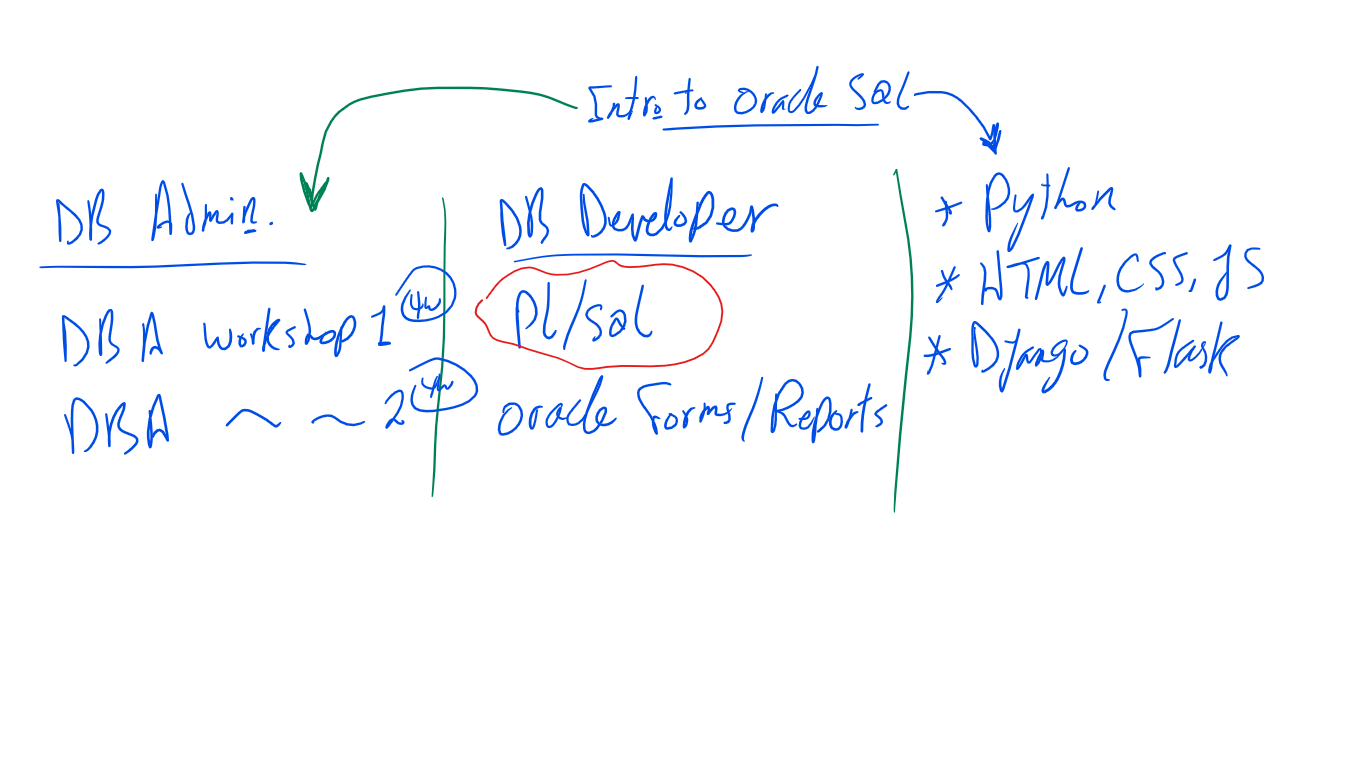 Intro to Oracle SQL
DB Admin.
DBA workshop 1 4w
DBA ~ ~ 2 4w
DB Developer
Pl/sql
Oracle Forms/Reports
* Python
* HTML, CSS, JS
* Django/Flask